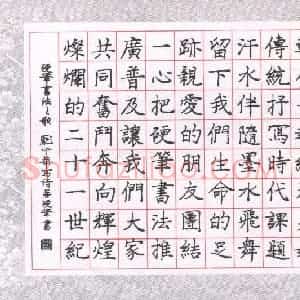 傳統抒寫時代課題
汗水伴隨墨水飛舞
留下我們生命的足
跡親愛的朋友團結
一心把硬筆書法推
廣普及讓我們大家
共同奮鬥奔向輝煌
燦爛的二十一世紀
硬筆書法之歌